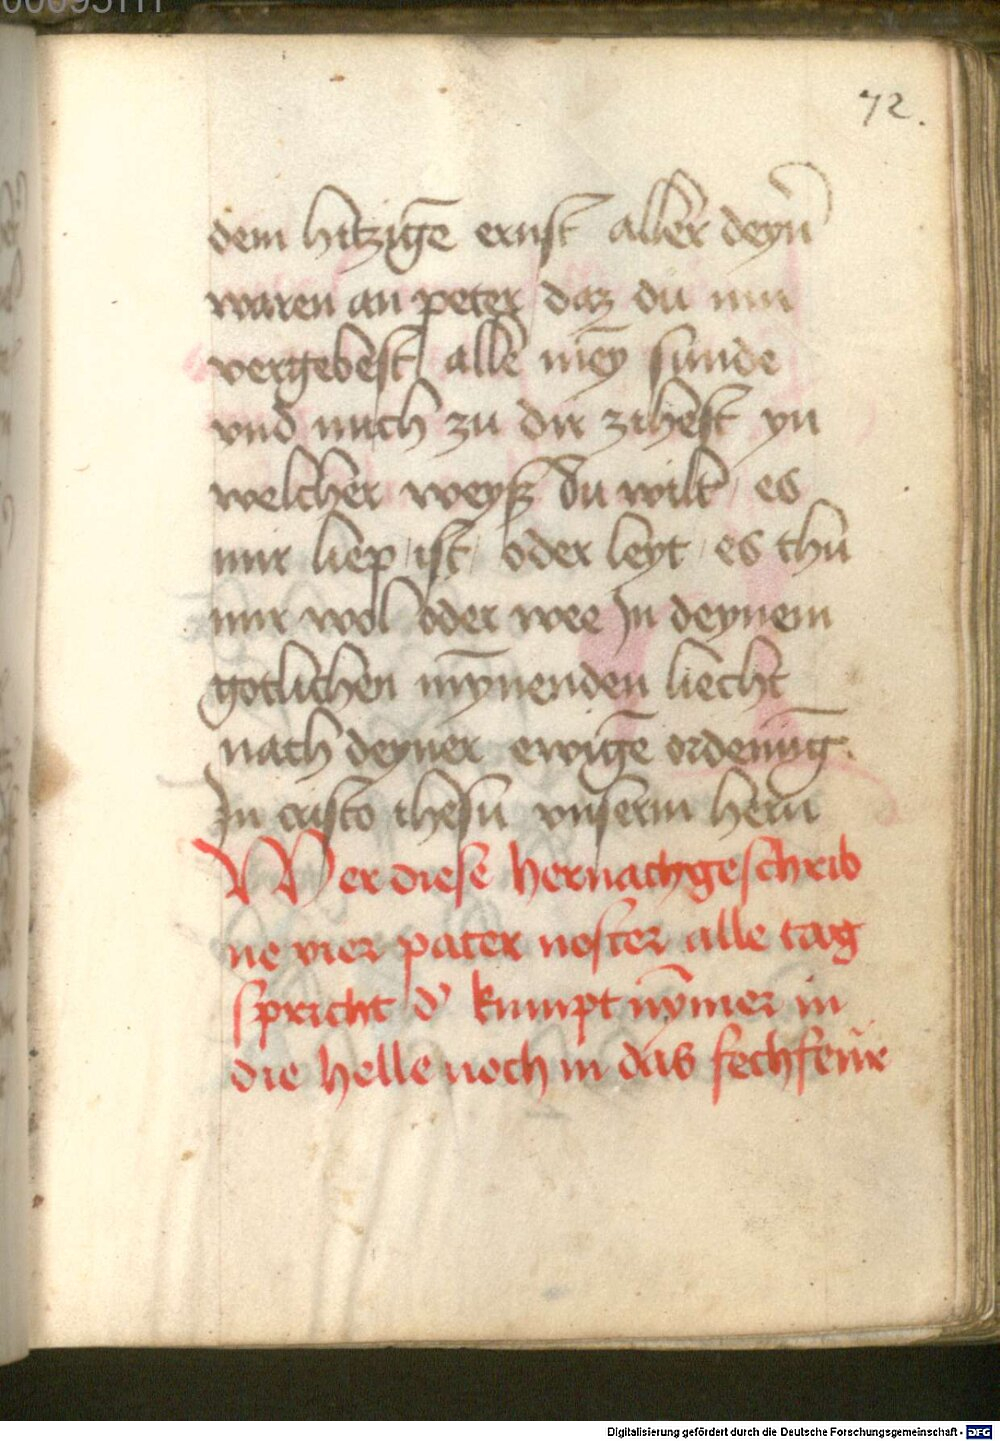 72.
dem hitzigē ernst aller deyn̄
waren an peter daz du mir
vergebest alle mey̅ sunde
vnd mich zu dir zihest yn
welcher weyß du wilt es
mir liep ist oder leyt es thu
mir wol oder wee In deynem
gotlichen mȳnenden liecht
nach deyner ewigē ordenūg
In cristo ihesu vnserm hern
Wer diese hernachgeschrib
ne vier pater noster alle tag
spricht d' kumpt nȳmer in
die helle noch in das fechfeur
Digitalisierung gefördert durch die Deutsche Forschungsgemeinschaft - DFG